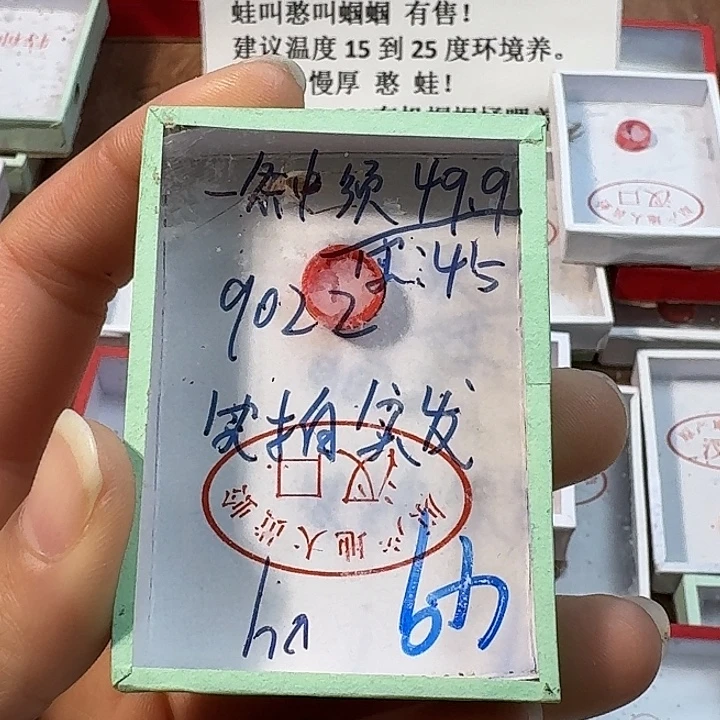 蛙叫憨叫蝈蝈 有售!
建议温度 15 到 25 度环境养。
慢厚 憨 蛙!
一条中须 49.9
45
9022
实拍实发
汉口
原产地大黄蛉